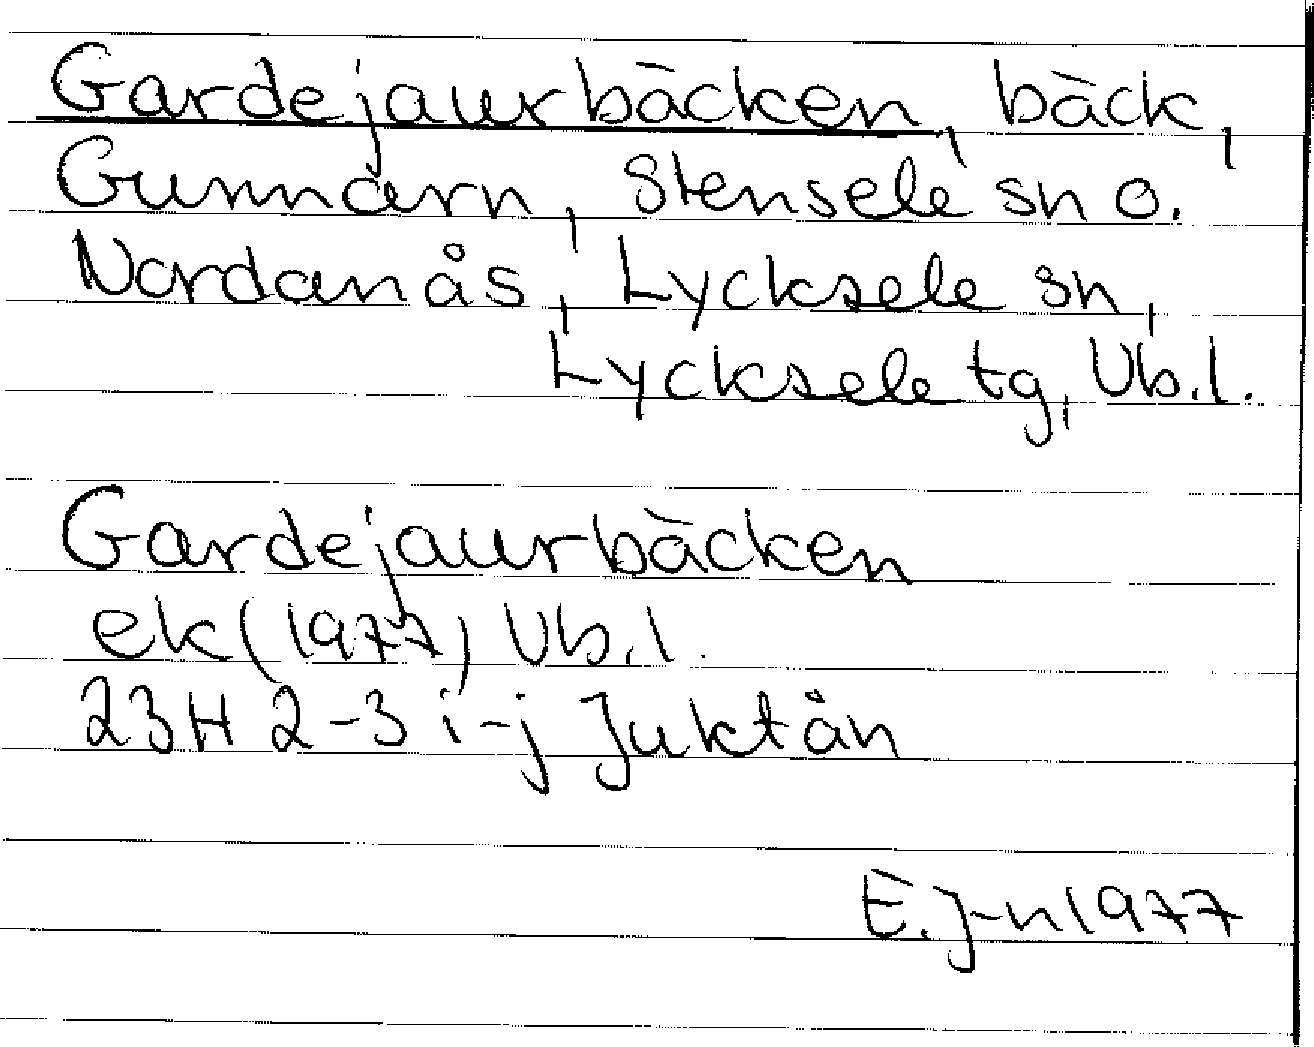 Gardejaurbäcken, bäck,
Gunnarn, Stensele sn o.
Nordanås, Lycksele sn,
Lycksele tg, Vb.l.
Gardejaurbäcken
ek (1977) Vb.l.
23H 2-3 i-j Juktån
E.J-n 1977